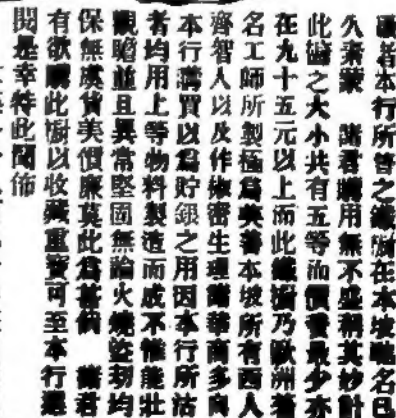 啟者本行所售之鐵櫥在本坡馳名已
久素蒙 諸君購用無不盛稱其妙計
此櫥之大小共有五等而價最少
在九十五元以上而此鐵櫥乃歐洲著
名工師所製極為美善本坡所有西人
齊智人以及作密生理諸華商多向
本行購買以為貯銀之用因本行所沽
者均用上等物料製造而成不惟能壯
觀瞻並且異常堅固無論火燒盜刼均
保無虞貨美價廉莫此為甚倘 諸君
有欲購此櫥以收藏重寶可至本行選
閱是幸特此聞佈